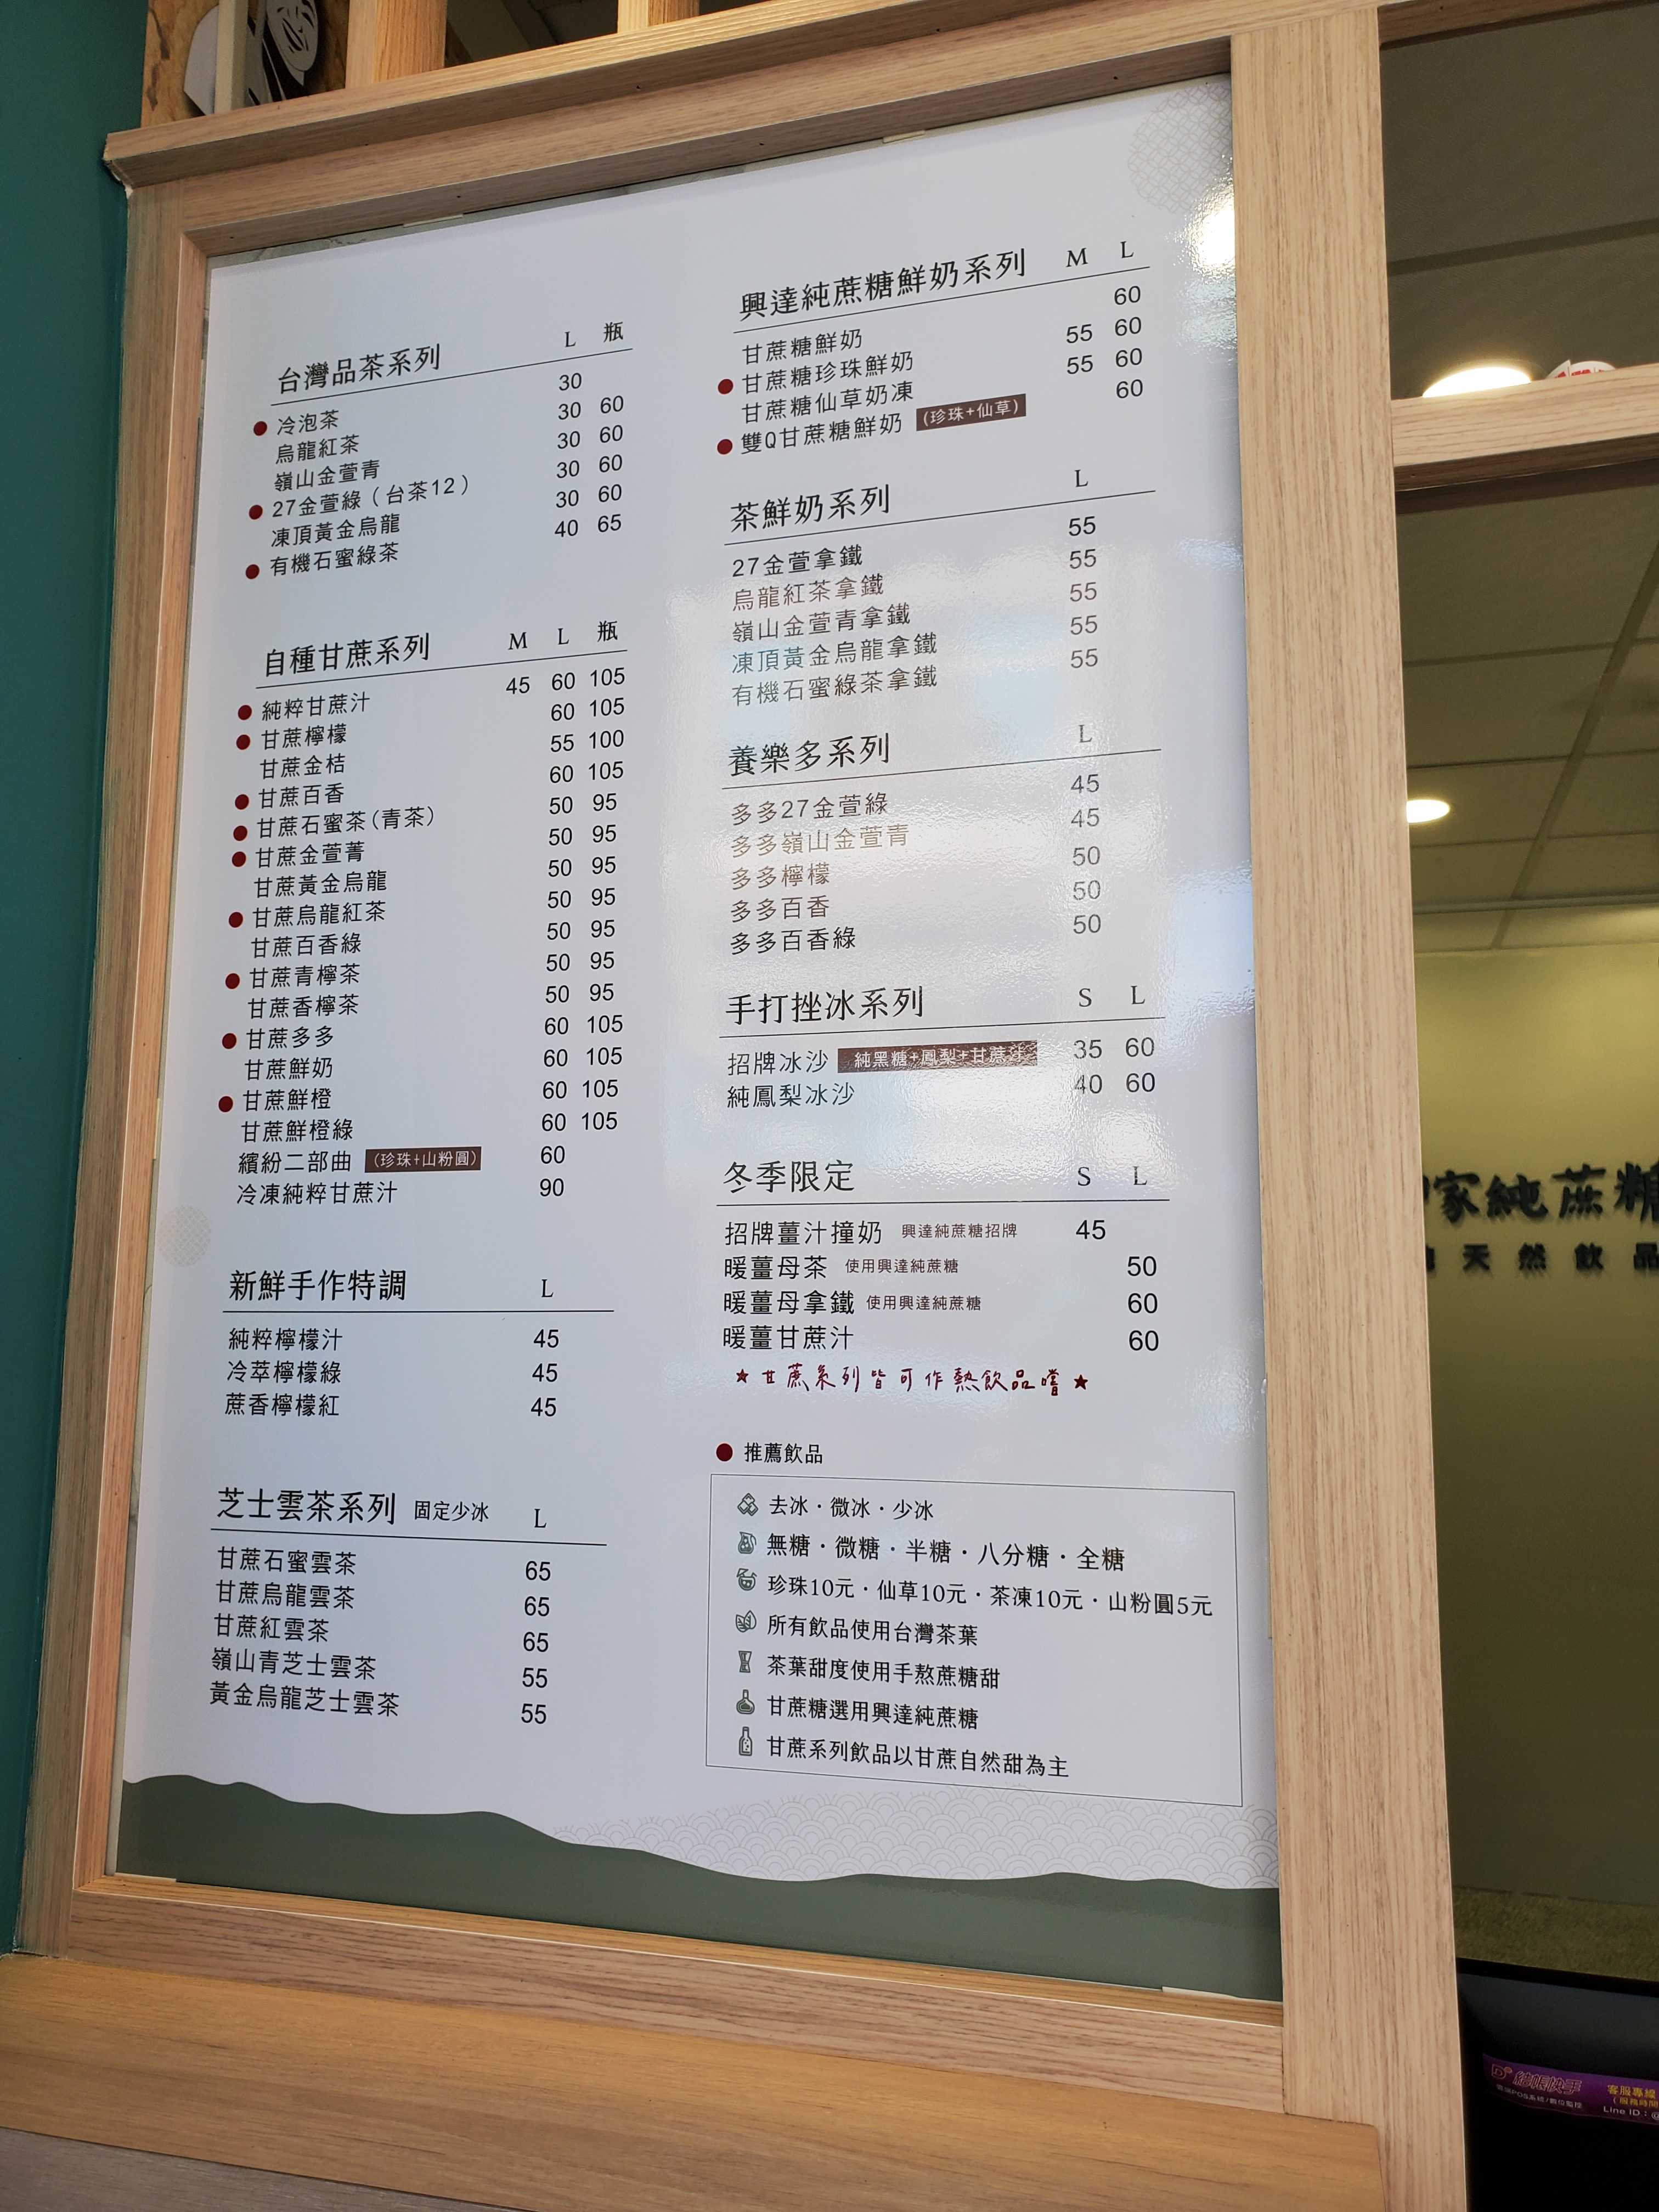 台灣品茶系列 L 瓶
冷泡茶 30
烏龍紅茶 30 60
嶺山金萱青 30 60
27金萱綠（台茶12） 30 60
凍頂黃金烏龍 30 60
有機石蜜綠茶 40 65
自種甘蔗系列 M L 瓶
純粹甘蔗汁 45 60 105
甘蔗檸檬 60 105
甘蔗金桔 55 100
甘蔗百香 60 105
甘蔗石蜜茶(青茶) 50 95
甘蔗金萱菁 50 95
甘蔗黃金烏龍 50 95
甘蔗烏龍紅茶 50 95
甘蔗百香綠 50 95
甘蔗青檸茶 50 95
甘蔗香檸茶 50 95
甘蔗多多 60 105
甘蔗鮮奶 60 105
甘蔗鮮橙 60 105
甘蔗鮮橙綠 60 105
繽紛二部曲 (珍珠+山粉圓) 60
冷凍純粹甘蔗汁 90
新鮮手作特調 L
純粹檸檬汁 45
冷萃檸檬綠 45
蔗香檸檬紅 45
芝士雲茶系列 固定少冰 L
甘蔗石蜜雲茶 65
甘蔗烏龍雲茶 65
甘蔗紅雲茶 65
嶺山青芝士雲茶 55
黃金烏龍芝士雲茶 55
興達純蔗糖鮮奶系列 M L
甘蔗糖鮮奶 60
甘蔗糖珍珠鮮奶 55 60
甘蔗糖仙草奶凍 55 60
雙Q甘蔗糖鮮奶 (珍珠+仙草) 60
茶鮮奶系列 L
27金萱拿鐵 55
烏龍紅茶拿鐵 55
嶺山金萱青拿鐵 55
凍頂黃金烏龍拿鐵 55
有機石蜜綠茶拿鐵 55
養樂多系列 L
多多27金萱綠 45
多多嶺山金萱青 45
多多檸檬 50
多多百香 50
多多百香綠 50
手打挫冰系列 S L
招牌冰沙 純黑糖+鳳梨+甘蔗汁 35 60
純鳳梨冰沙 40 60
冬季限定 S L
招牌薑汁撞奶 興達純蔗糖招牌 45
暖薑母茶 使用興達純蔗糖 50
暖薑母拿鐵 使用興達純蔗糖 60
暖薑甘蔗汁 60
★甘蔗系列皆可作熱飲品嚐★
推薦飲品
去冰・微冰・少冰
無糖・微糖・半糖・八分糖・全糖
珍珠10元・仙草10元・茶凍10元・山粉圓5元
所有飲品使用台灣茶葉
茶葉甜度使用手熬蔗糖甜
甘蔗糖選用興達純蔗糖
甘蔗系列飲品以甘蔗自然甜為主
家純蔗糖
天然飲品
結帳快手
客服專線
Line ID：@